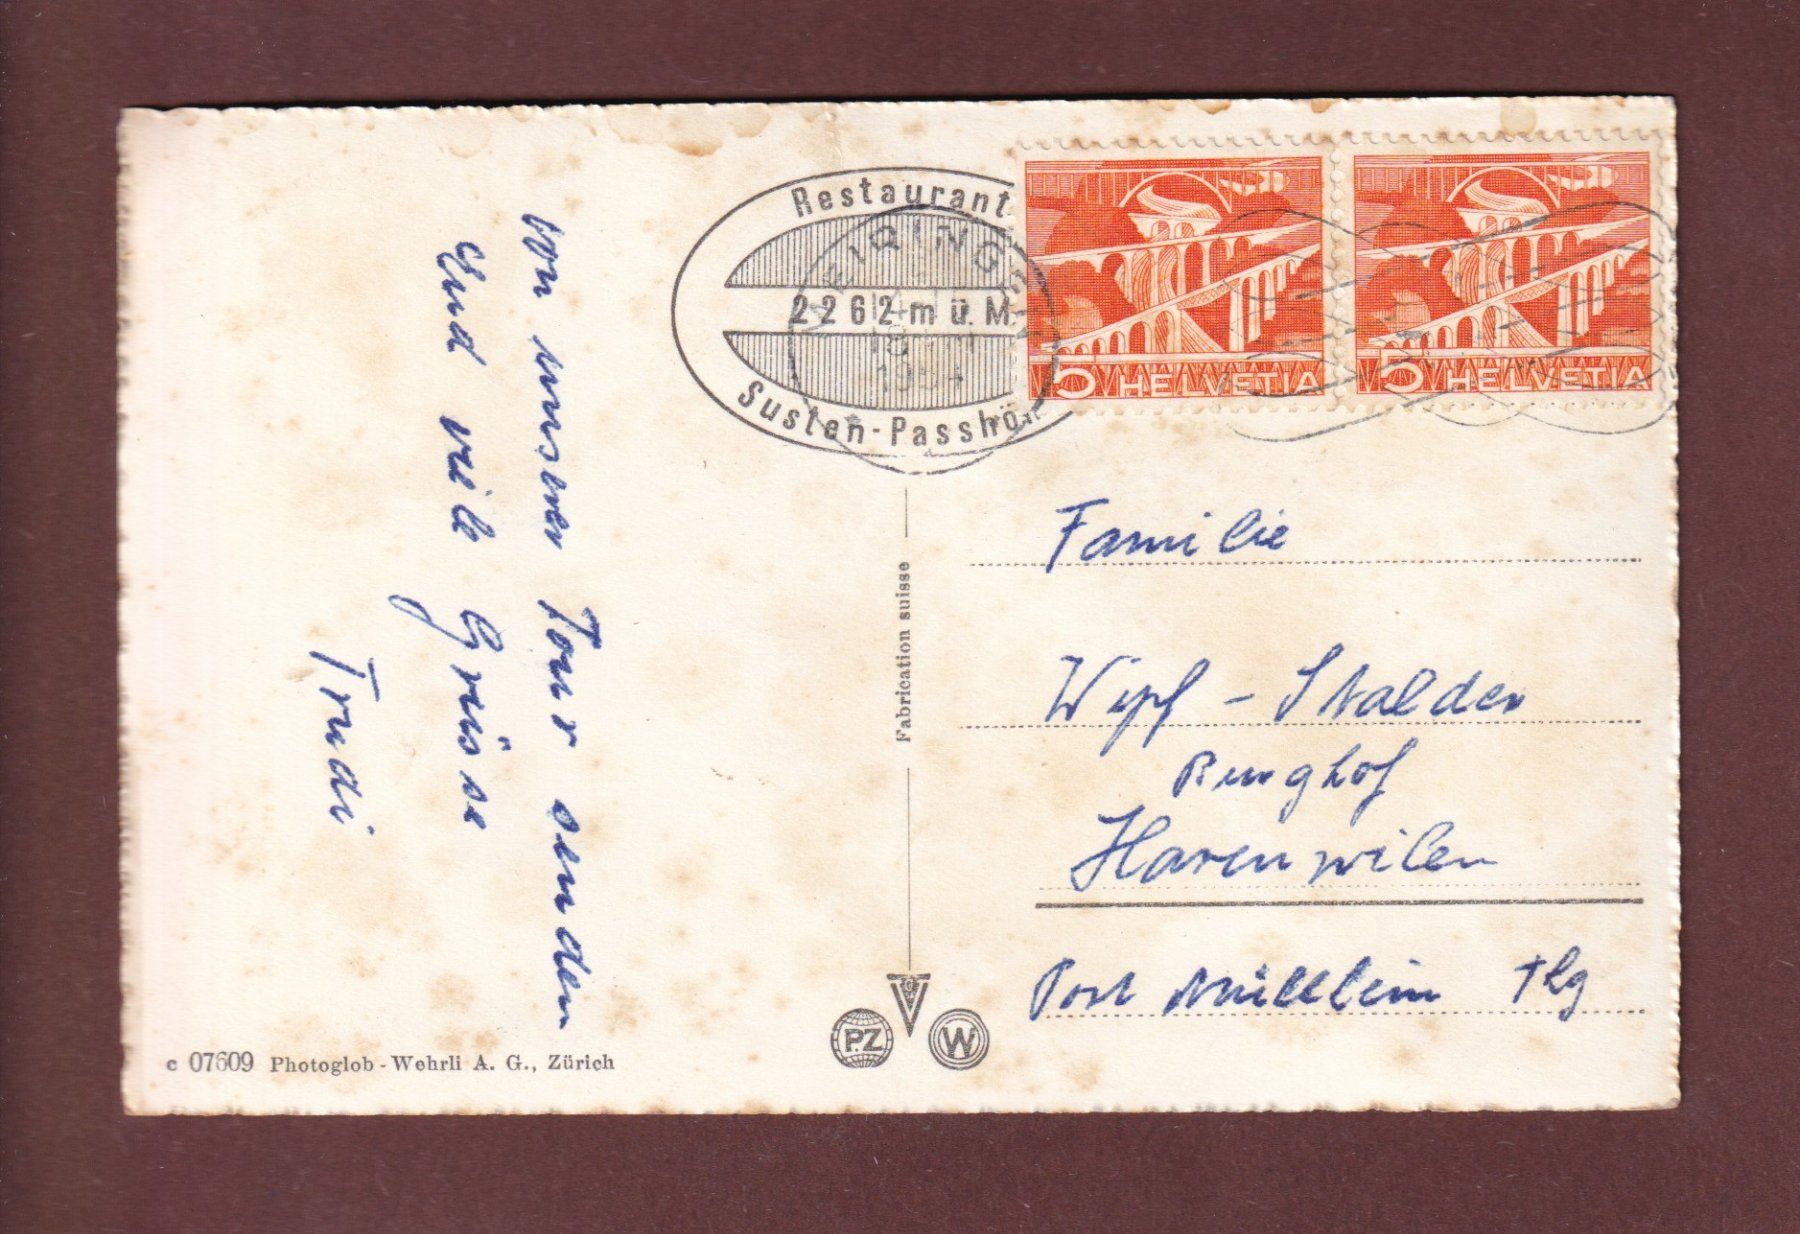 von unserer Tour senden
Euch viele Grüsse
Trudi
Restaurant
2262 m ü. M.
Susten-Passhöh
MEIRINGEN
1954
5 HELVETIA
5 HELVETIA
Familie
Wipf - Stalder
Burghof
Harenwilen
Post Müllheim Thg
Fabrication suisse
P.Z
W
c 07609 Photoglob-Wehrli A. G., Zürich